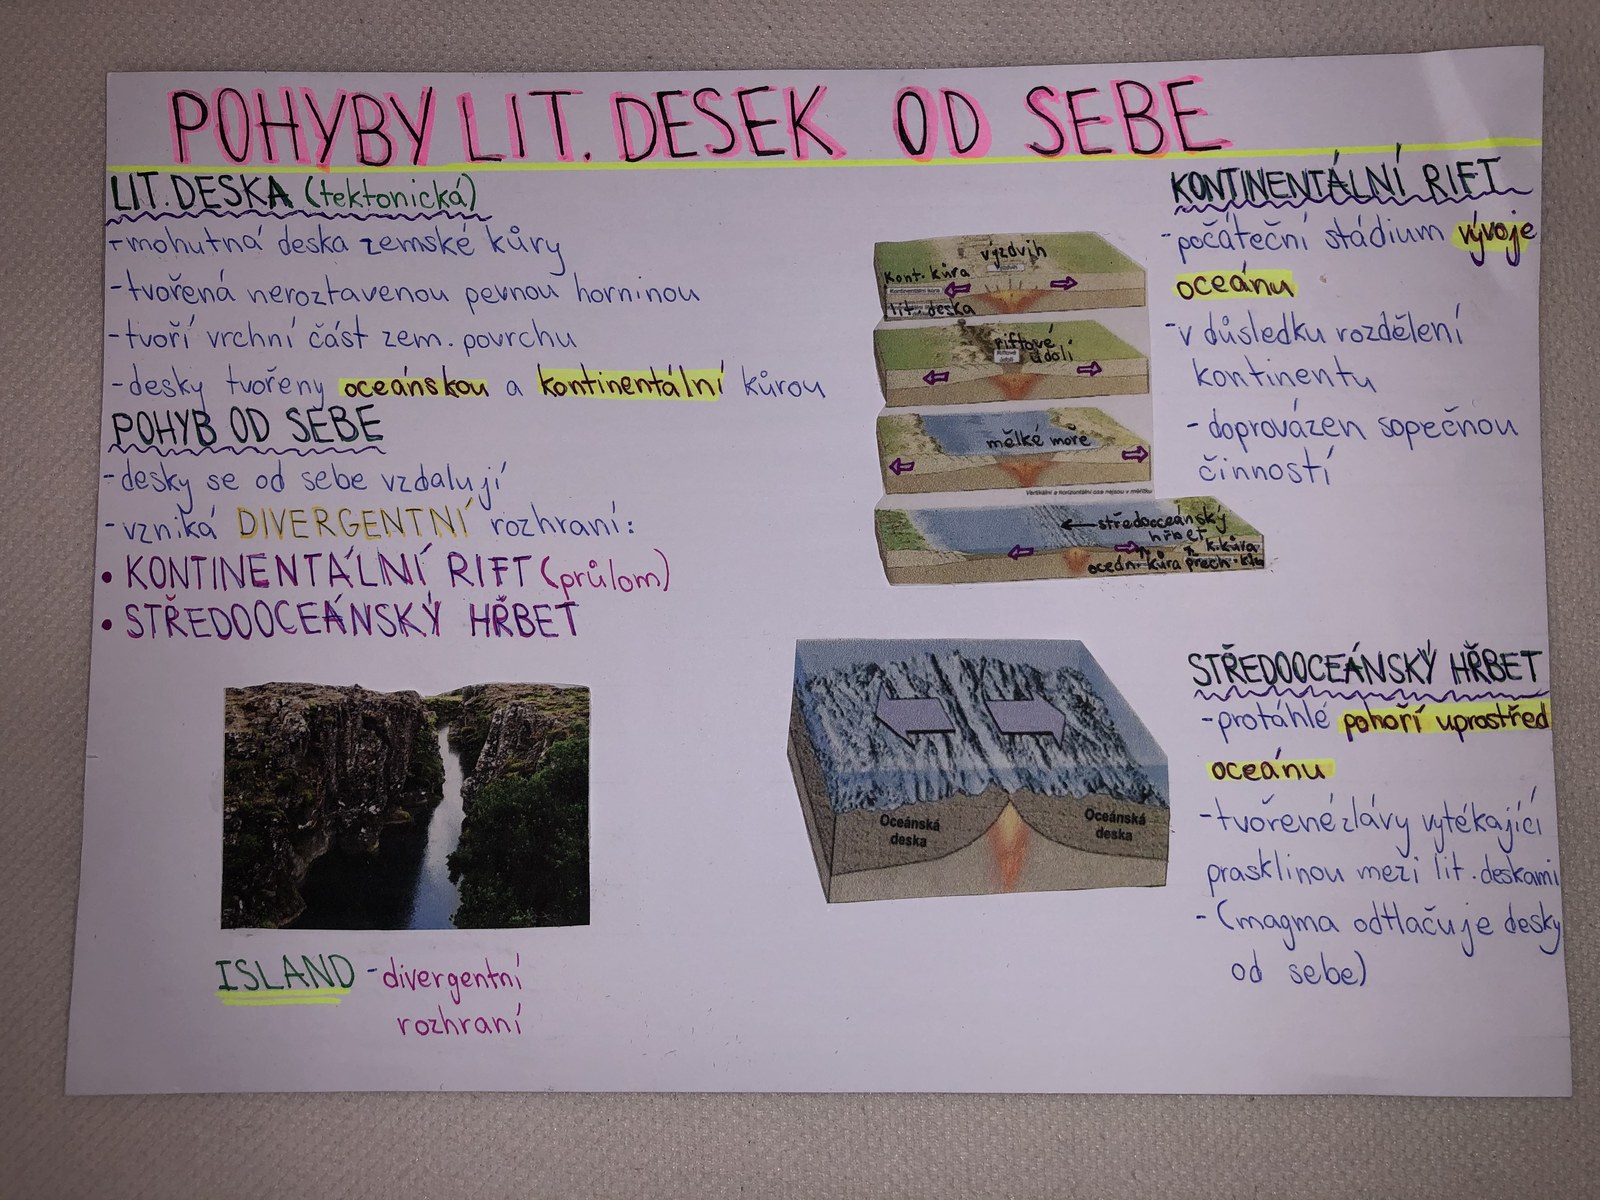 POHYBY LIT. DESEK OD SEBE
LIT. DESKA (tektonická)
-mohutná deska zemské kůry
-tvořená neroztavenou pevnou horninou
-tvoří vrchní část zem. povrchu
-desky tvořeny oceánskou a kontinentální kůrou
POHYB OD SEBE
-desky se od sebe vzdalují
-vzniká DIVERGENTNÍ rozhraní:
• KONTINENTÁLNÍ RIFT (průlom)
• STŘEDOOCEÁNSKÝ HŘBET
ISLAND -divergentní
rozhraní
výzdvih
kont. kůra
lit. deska
riftové
údolí
mělké moře
Vertikální a horizontální osa nejsou v měřítku
středooceánský
hřbet
k. kůra
oceán. kůra přech.
Oceánská
deska
Oceánská
deska
KONTINENTÁLNÍ RIFT
-počáteční stádium vývoje
oceánu
-v důsledku rozdělení
kontinentu
-doprovázen sopečnou
činností
STŘEDOOCEÁNSKÝ HŘBET
-protáhlé pohoří uprostřed
oceánu
-tvořené z lávy vytékající
prasklinou mezi lit. deskami
-(magma odtlačuje desky
od sebe)